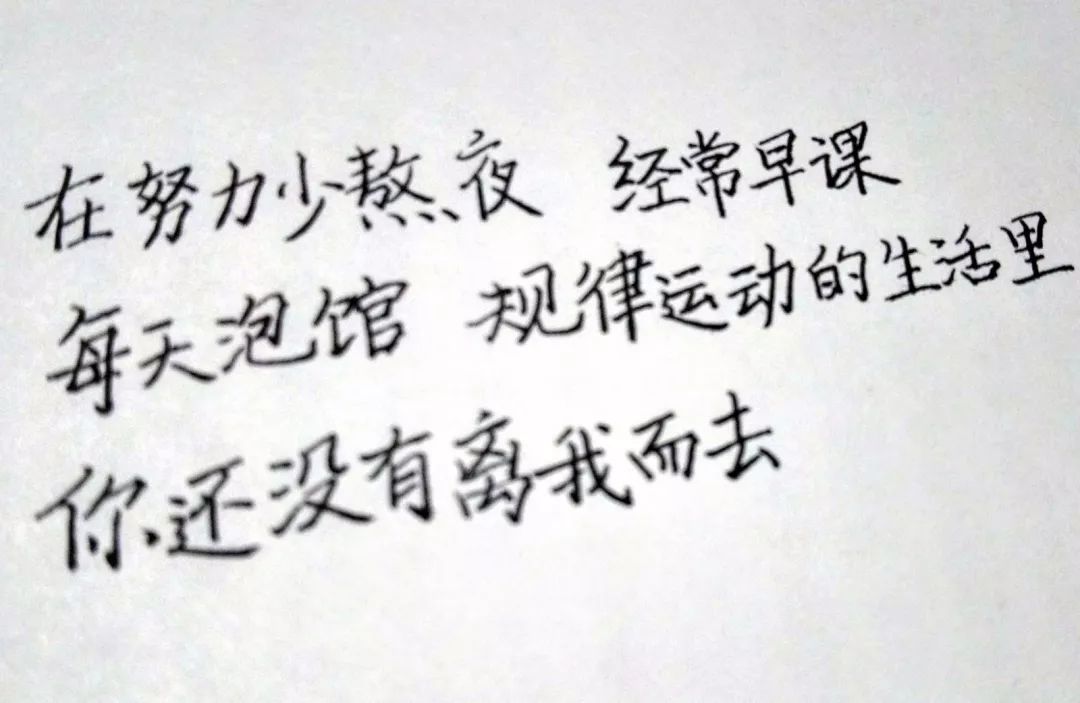 在努力少熬夜 经常早课
每天泡馆 规律运动的生活里
你还没有离我而去